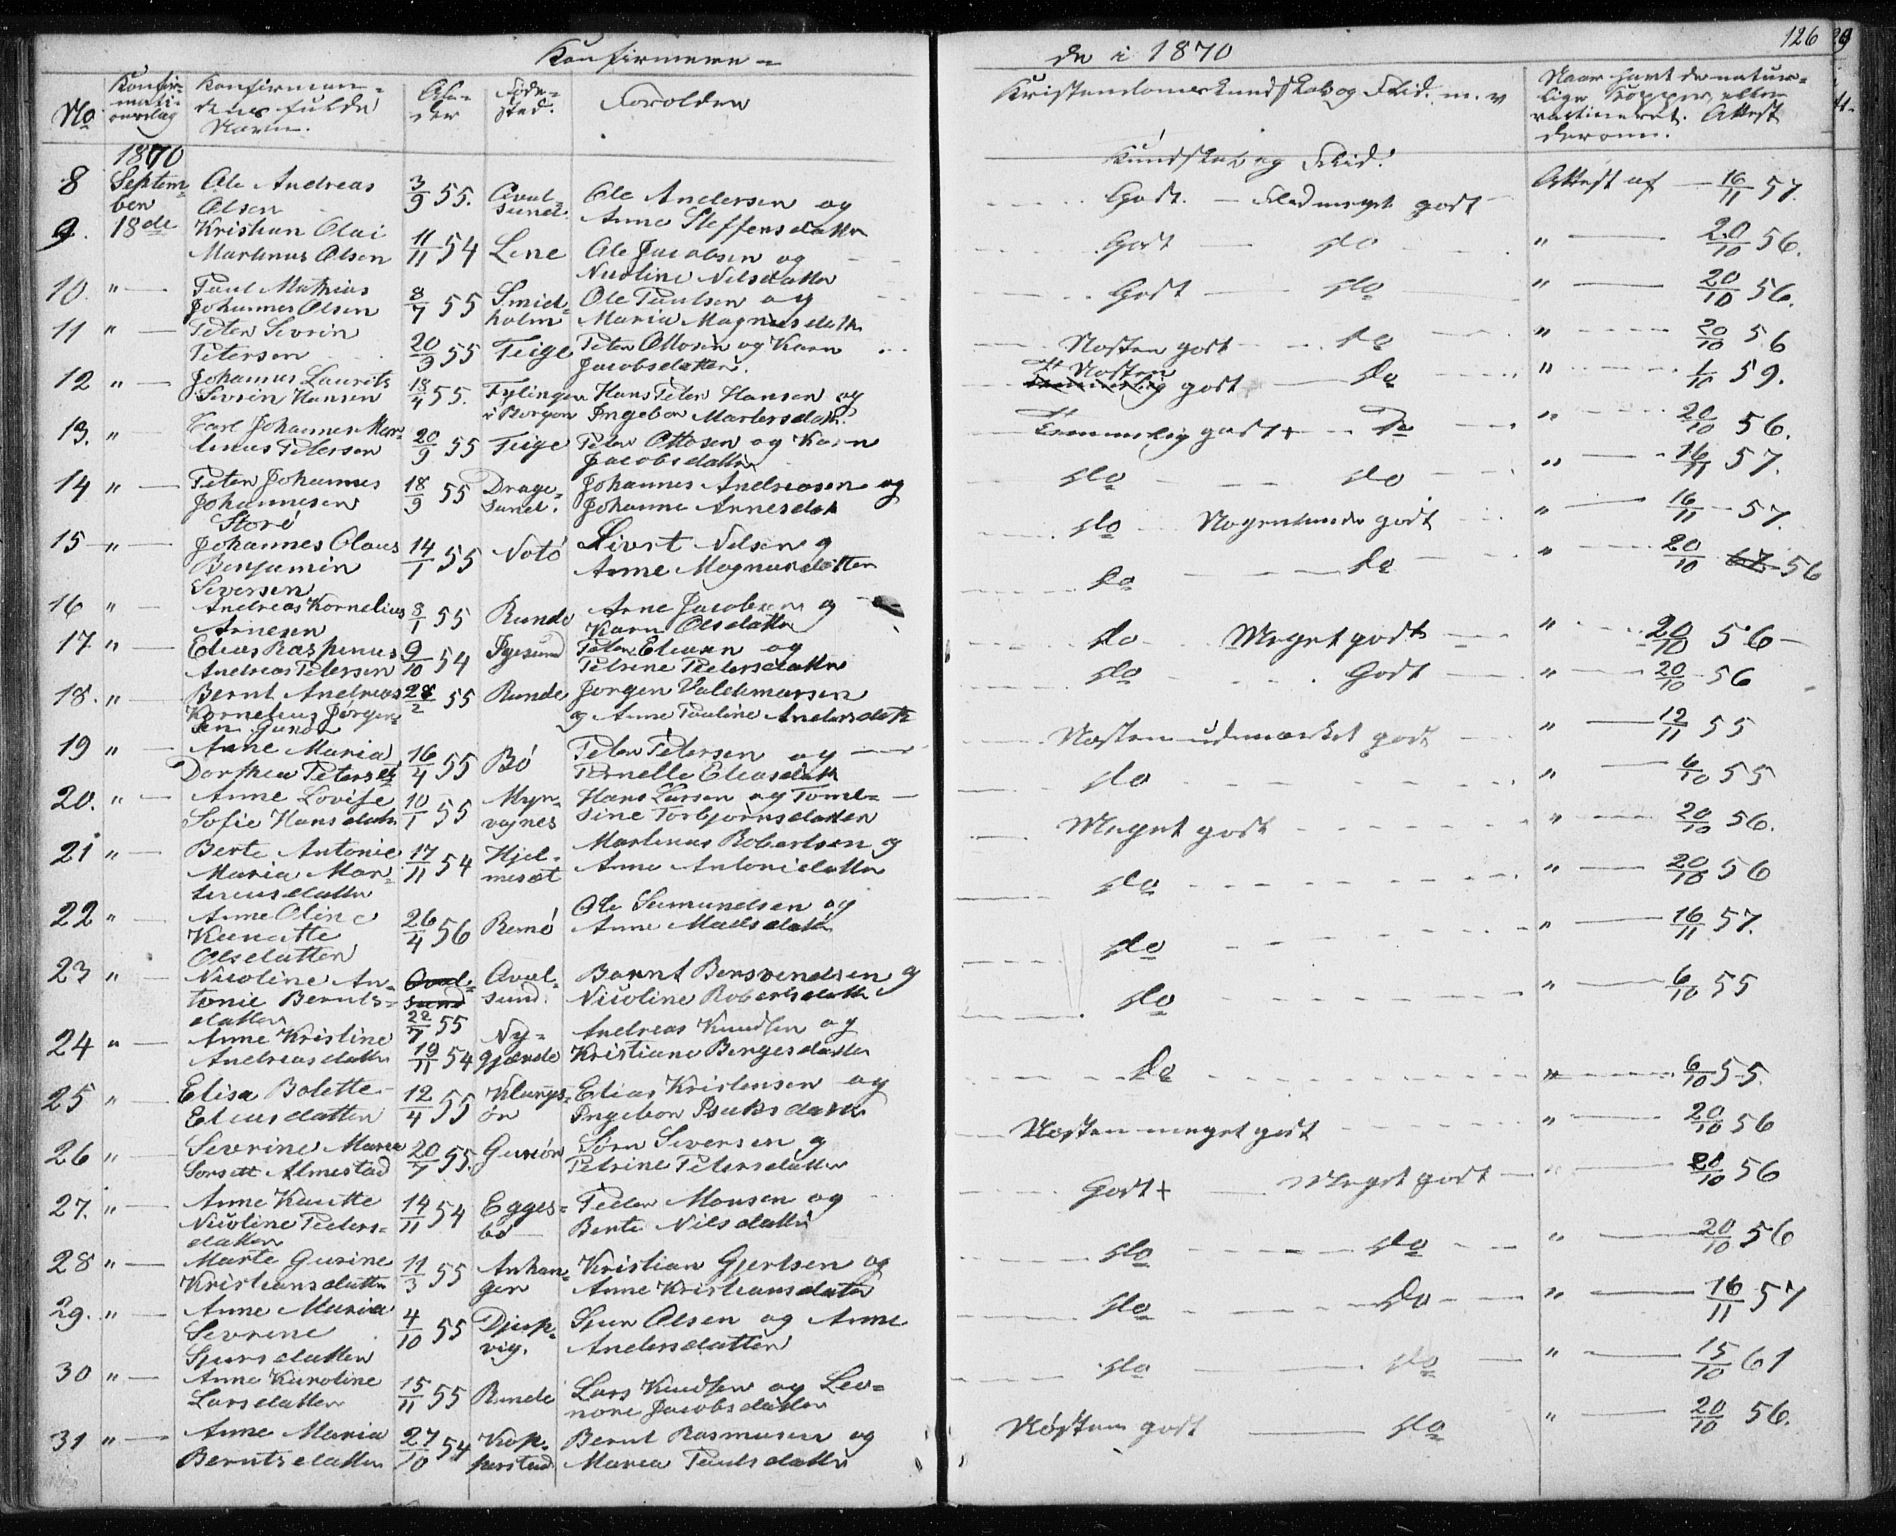 Konfirmere- de i 1870 126
No Konfir- mati- onsdag Konfirman- dens fulde Navn. Al- der Føde- sted. Forældre Kristendomskundskab og Flid m. v Naar havt de natur- lige Kopper eller vaccineret. Attest derom.
1870 Kundskab og Flid.
8 Septem- ber Ole Andreas Olsen 3/9 55. Aval- sund Ole Andersen og Anne Steffensdatter Godt. - Flid meget godt Attest af 16/11 57.
9. 18de Kristian Olai Martinus Olsen 11/11 54 Lene Ole Jacobsen og Nicoline Nilsdatter Godt do " 20/10 56.
10. " Paul Mathias Johannes Olsen 8/7 55 Smiel- holm Ole Paulsen og Maria Magnusdatter Godt do " 20/10 56.
11 " Peter Severin Petersen 20/9 55 Teige Peter Ottosen og Karn Jacobsdatter. Næsten godt do " 20/10 56
12 " Johannes Laurits Severin Hansen 18/4 55. Fylingen i Bergen Hans Peter Hansen og Ingebor Martersdatter Næsten godt do " 1/10 59.
13. " Carl Johannes Mar- tinus Petersen 20/9 55 Teige Peter Ottosen og Karn Jacobsdatter Temmelig godt+ do " 20/10 56.
14 " Peter Johannes Johannesen Storø 18/9 55 Drage- sund. Johannes Andreasen og Johanne Arnesdat do do " 16/11 57.
15 " Johannes Olaus Benjamin Seversen 14/1 55 Notø Sivert Nilsen og Anne Magnusdatter do Nogenlunde godt " 16/11 57.
16 " Andreas Kornelius Arnesen 8/1 55 Runde Arne Jacobsen og Karn Olsdatter do do " 20/10 56
17. " Elias Raspinus Andreas Petersen 9/10 54 Igesund Peter Eliasen og Petrine Pedersdatter do Meget godt " 20/10 56
18. " Bernt Andreas Kornelius Jørgen- sen 28/2 55 Runde Jørgen Valdemarsen og Anne Pauline Andersdatter do Godt " 20/10 56
19 " Anne Maria Dorthea Petersdt 16/4 55 Bø Peter Petersen og Pernelle Eliasdatt Næsten udmærket godt " 12/11 55
20. " Anne Lovise Sofie Hansdatter 10/1 55 Myr- vagnes Hans Larsen og Tomi- sine Torbjørnsdatter do " 6/10 55
21 " Berte Antonie Maria Mar- tinusdatter 17/11 54 Hjel- mesæt Martinus Robertsen og Anne Antonidatter Meget godt " 20/10 56.
22 " Anne Oline Kanutte Olsdatter 26/4 56 Remø Ole Semundsen og Anne Madsdatter do " 20/10 56
23 " Nicoline An- tonie Bernts- datter 22/7 55 Aval- sund. Bernt Bersvendsen og Nicoline Robertsdatter do " 16/11 57.
24 " Anne Kristine Andreasdatter 19/11 54 Ny- gjærde Andreas Knudsen og Kristiane Bengesdatter do " 6/10 55
25 " Elisa Bolette Eliasdatter 12/4 55 Klungs- ør Elias Kristensen og Ingebor Isaksdatter do " 6/10 55.
26 " Severine Maria Almestad 20/7 55. Gursør Sørn Seversen og Petrine Petersdatter Næsten meget godt " 20/10 56
27. " Anne Kanutte Nicoline Peders- datter 14/11 54 Egges- bø Peder Monsen og Berte Nilsdatter Godt+ Meget godt " 20/10 56
28 " Marte Gurine Kristiansdatter 11/3 55 Arhan- ger Kristian Gjertsen og Anne Kristiansdatter do do " 20/10 56
29. " Anne Maria Sevrine Sjursdatter 4/10 55 Djup- vig. Sjur Olsen og Anne Andersdatter do do " 16/11 57
30 " Anne Karoline Larsdatter 15/11 55 Runde Lars Knudsen og Leo- nore Jacobsdatter do do " 15/10 61
31 " Anne Maria Berntsdatter 27/10 54 Kop- perstad Bernt Rasmusen og Maria Paulsdatter Næsten godt do " 20/10 56.